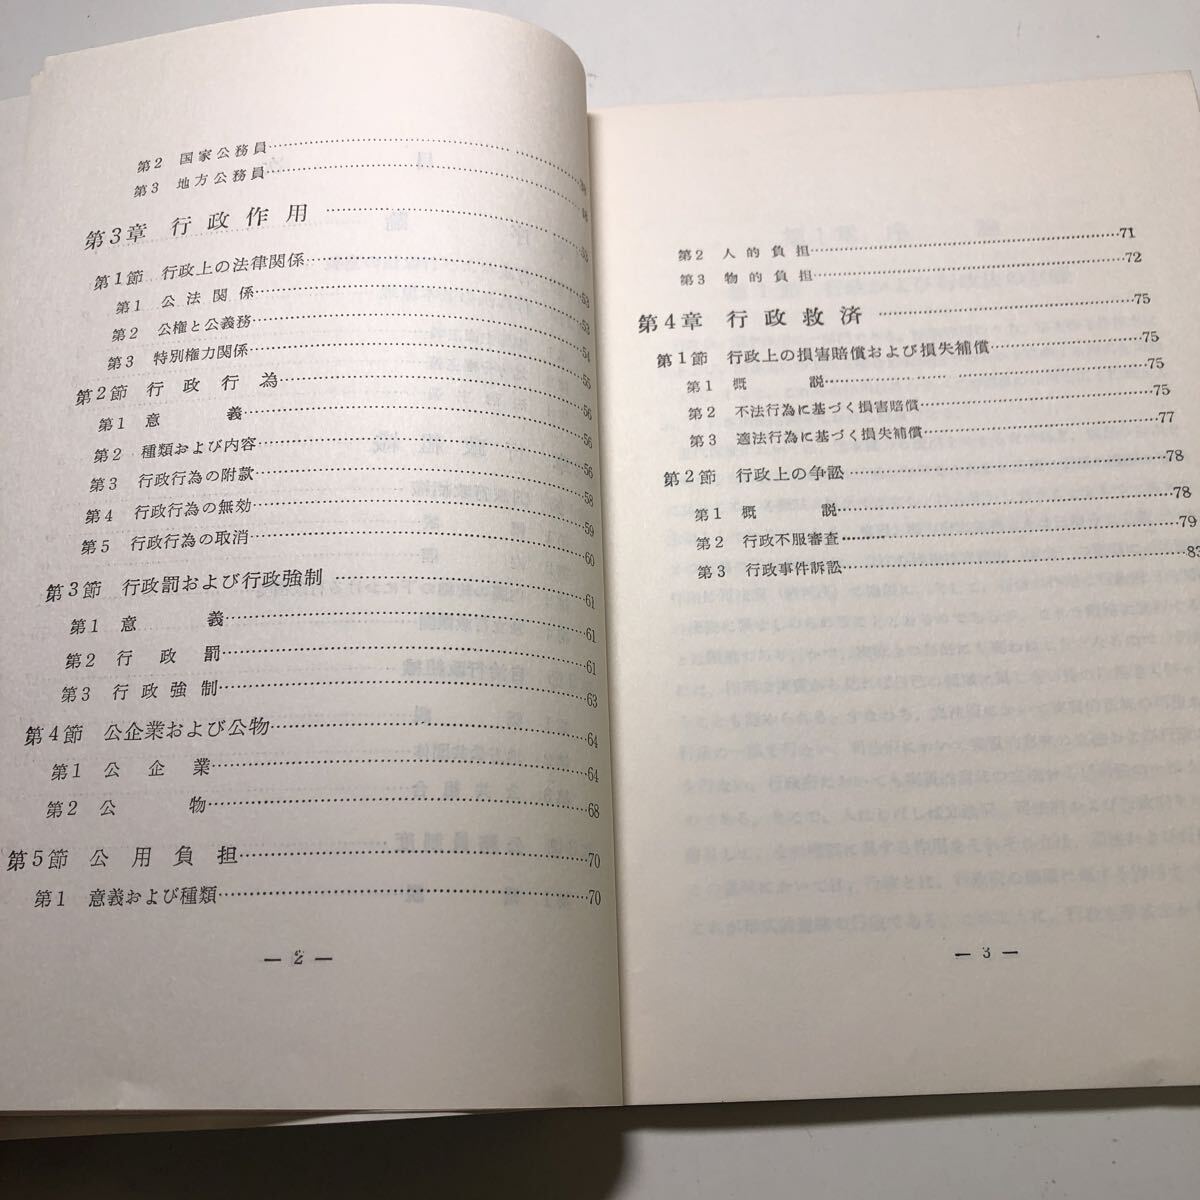 第2 国家公務員
第3 地方公務員
第3章 行政作用 53
第1節 行政上の法律関係 53
第1 公法関係 53
第2 公権と公義務 54
第3 特別権力関係 55
第2節 行政行為 56
第1 意義 56
第2 種類および内容 56
第3 行政行為の附款 58
第4 行政行為の無効 59
第5 行政行為の取消 60
第3節 行政罰および行政強制 61
第1 意義 61
第2 行政罰 61
第3 行政強制 63
第4節 公企業および公物 64
第1 公企業 64
第2 公物 68
第5節 公用負担 70
第1 意義および種類 70
— 2 —
第2 人的負担 71
第3 物的負担 72
第4章 行政救済 75
第1節 行政上の損害賠償および損失補償 75
第1 概説 75
第2 不法行為に基づく損害賠償 75
第3 適法行為に基づく損失補償 77
第2節 行政上の争訟 78
第1 概説 78
第2 行政不服審査 79
第3 行政事件訴訟 83
— 3 —